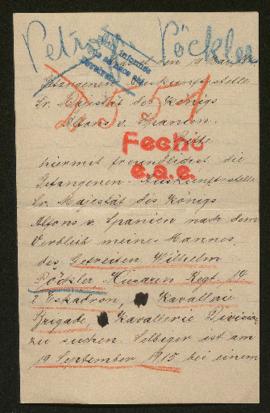 Petro Pöckler
2557
Gefangenen Auskunftsstelle
Sr. Majestät des Königs
Alfons v. Spanien.
Fecho
e.a.e.
Bitte
hiermit freundlichst die
Gefangenen Auskunftsstelle
Sr. Majestät des Königs
Alfons v. Spanien nach dem
Verbleib meines Mannes,
des Gefreiten Wilhelm
Pöckler Husaren Regt. 14
2 Eskadron, Kavallerie
Brigade Kavallerie Division
zu suchen. Selbiger ist am
19 September 1915 bei einem